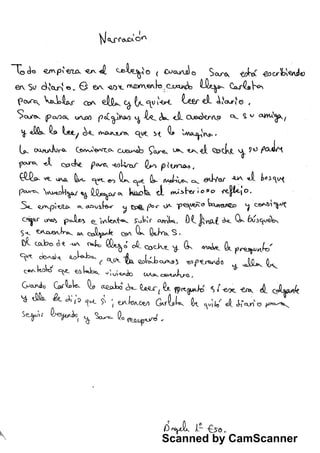 Narración
Todo empieza en el colegio, cuando Sara está escribiendo
en su diario. Es en ese momento, cuando llega Carlota
para hablar con ella y le quiere leer el diario.
Sara pasa unas páginas y le da el cuaderno a su amiga,
y ella lo lee, de manera que se lo imagina.
La aventura comienza cuando Sara va en el coche y su padre
para el coche para estirar las piernas.
Ella ve una luz que es la que la a entrar en el bosque
para investigar y llegar a el misterioso reflejo.
Se empieza a asustar y por un pequeño y consigue
coger unos palos e intenta subir arriba. Al final de la búsqueda
se encuentra un colgante con la letra S.
Al cabo de un rato llegó al coche y la madre le preguntó
que donde estaba, que la estábamos esperando y ella le
contestó que estaba viviendo una aventura.
Cuando Carlota lo acabó de leer, le preguntó si ese era el colgante
y ella le dijo que sí; entonces Carlota le quitó el diario para
seguir leyendo y Sara lo recuperó.
Ángela 1º ESO.
Scanned by CamScanner